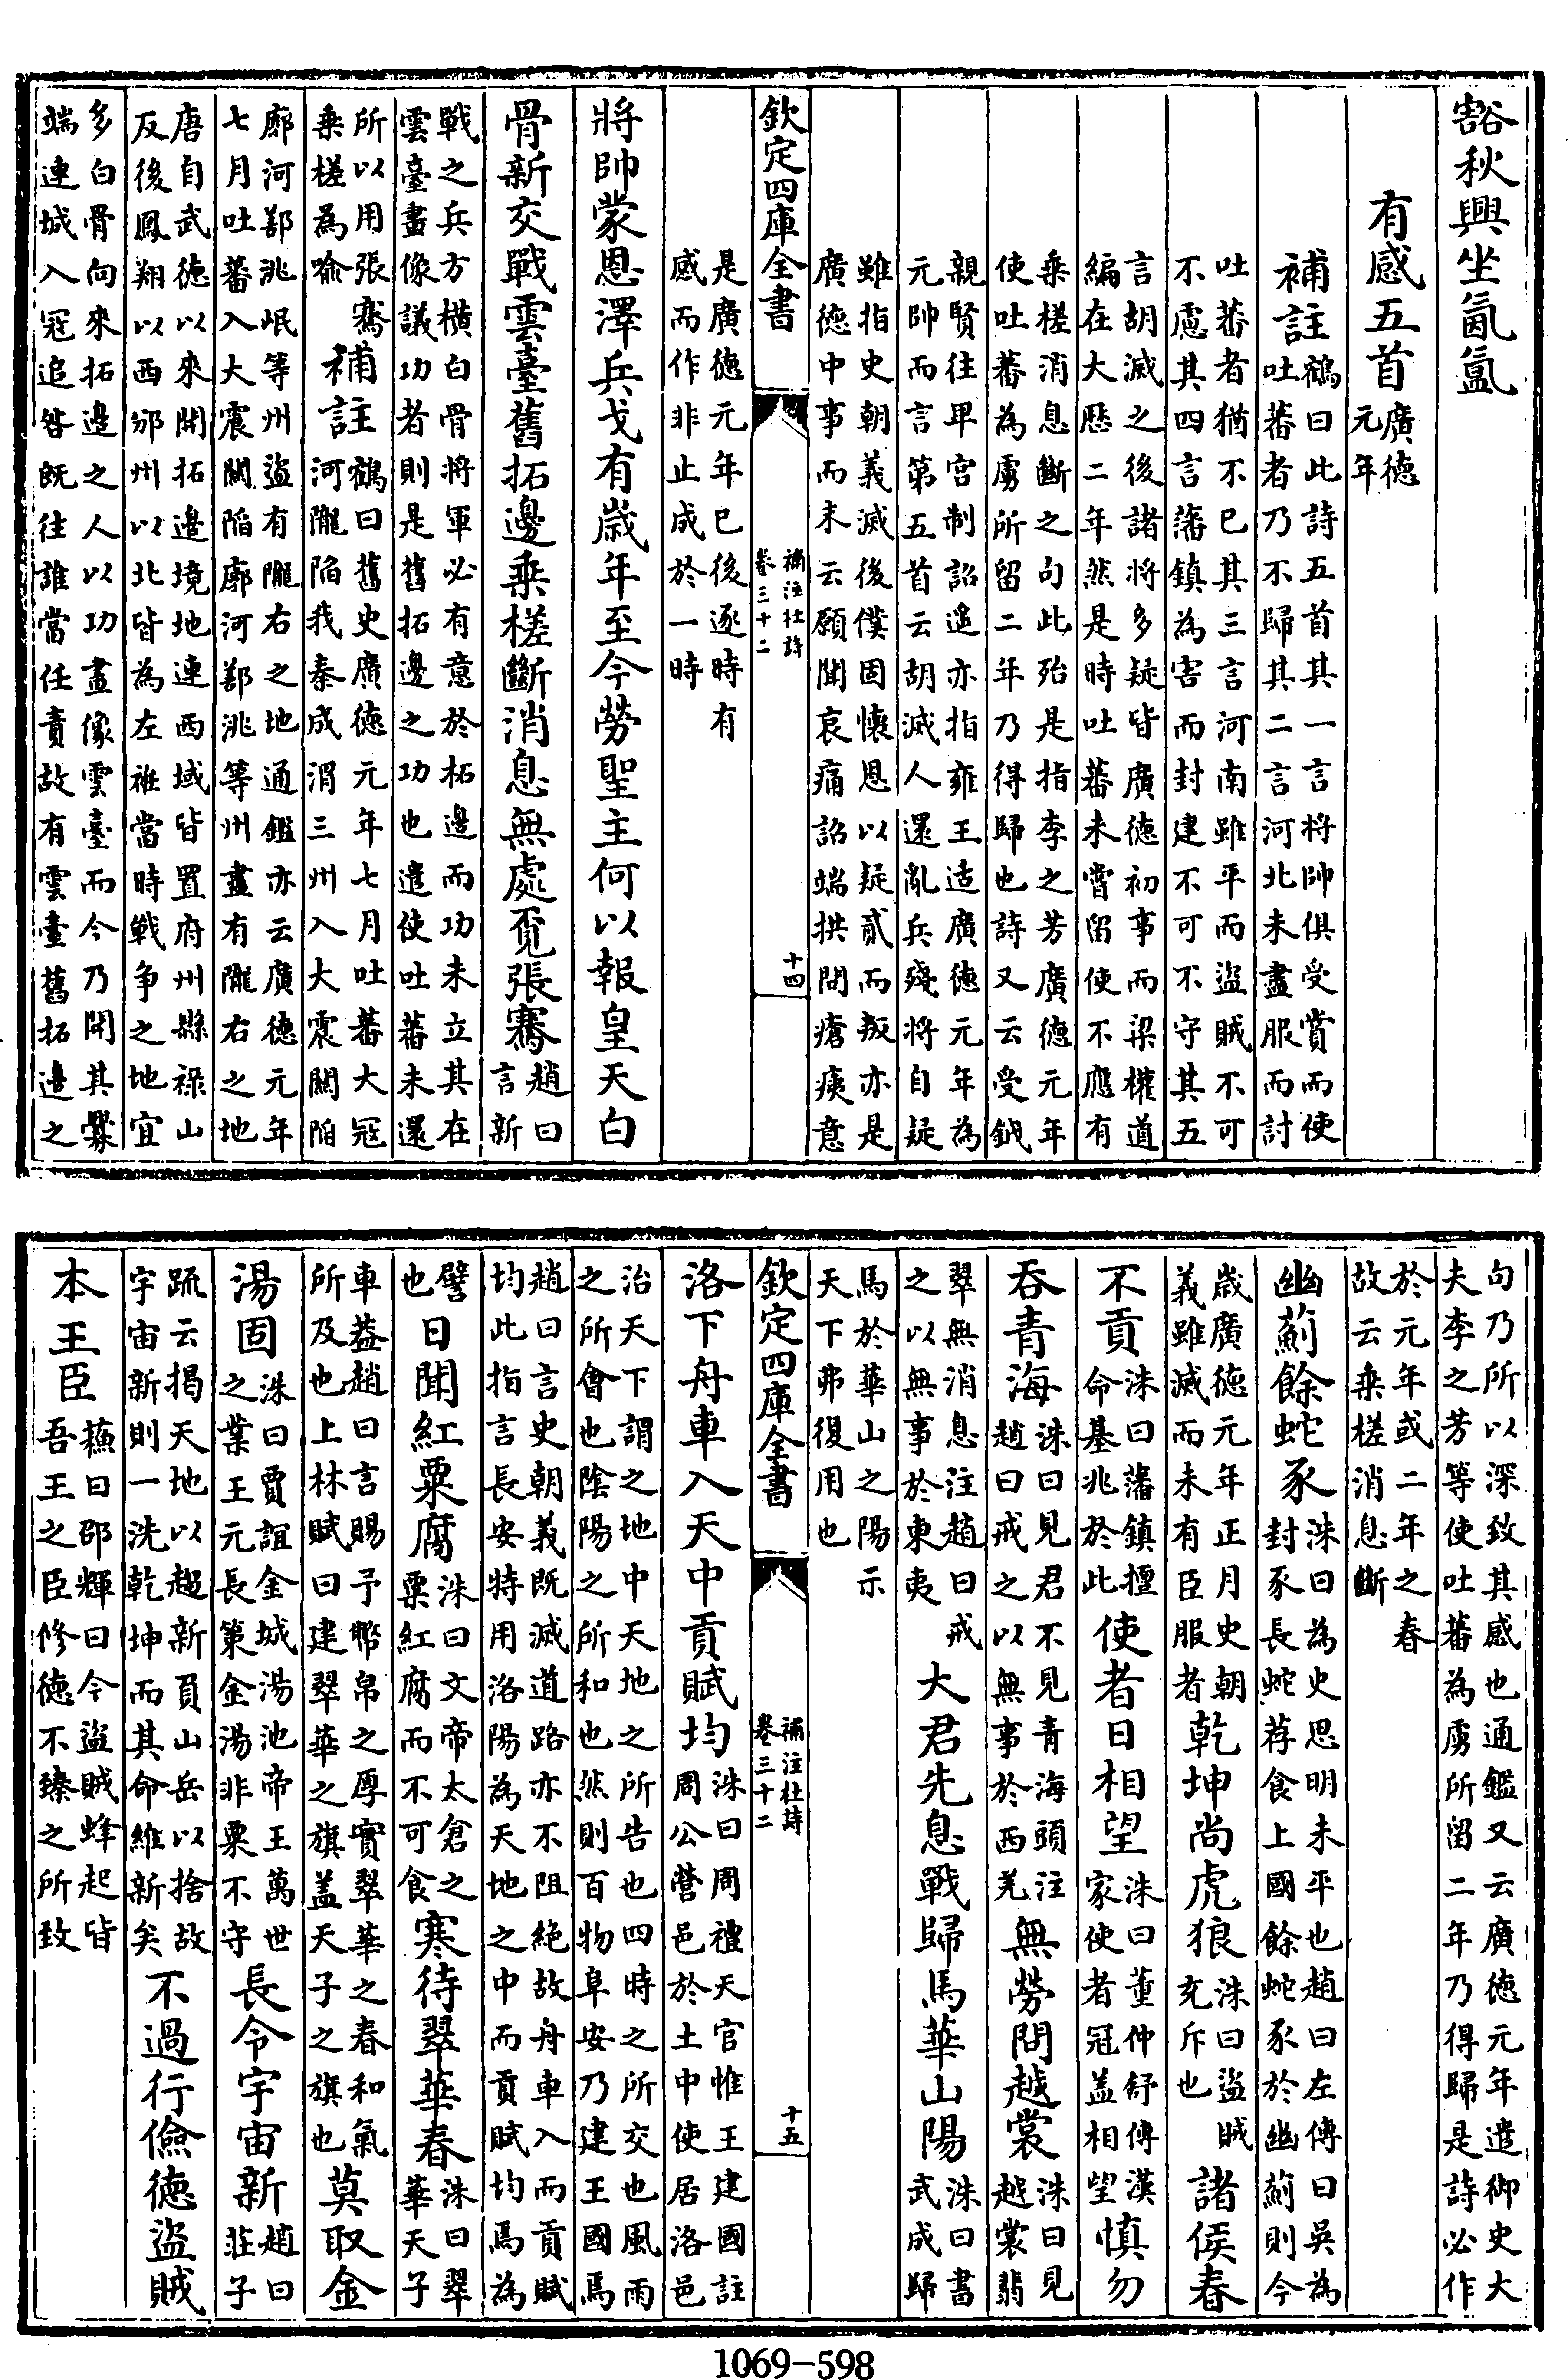 豁秋興坐氤氳
有感五首廣德元年
補註鶴曰此詩五首其一言將帥俱受賞而使吐蕃者乃不歸其二言河北未盡服而討
吐蕃者猶不已其三言河南雖平而盜賊不可不慮其四言藩鎮為害而封建不可不守其五
言胡滅之後諸將多疑皆廣德初事而梁權道編在大厯二年然是時吐蕃未嘗留使不應有
乘槎消息斷之句此殆是指李之芳廣德元年使吐蕃為虜所留二年乃得歸也詩又云受鉞
親賢往卑宮制詔遥亦指雍王适廣德元年為元帥而言第五首云胡滅人還亂兵殘將自疑
雖指史朝義滅後僕固懷恩以疑貳而叛亦是廣德中事而末云願聞哀痛詔端拱問瘡痍意
欽定四庫全書 補注杜詩卷三十二 十四
是廣德元年已後逐時有感而作非止成於一時
將帥蒙恩澤兵戈有歲年至今勞聖主何以報皇天白
骨新交戰雲臺舊拓邊乘槎斷消息無處覓張騫趙曰言新
戰之兵方橫白骨將軍必有意於柘邊而功未立其在雲臺畫像議功者則是舊拓邊之功也遣使吐蕃未還
所以用張騫乘槎為喻補註鶴曰舊史廣德元年七月吐蕃大冦河隴陷我秦成渭三州入大震關陷
廓河鄯洮岷等州盜有隴右之地通鑑亦云廣德元年七月吐蕃入大震關陷廓河鄯洮等州盡有隴右之地
唐自武德以來開拓邊境地連西域皆置府州縣祿山反後鳳翔以西邠州以北皆為左袵當時戰争之地宜
多白骨向來拓邊之人以功畫像雲臺而今乃開其釁端連城入冦追咎既往誰當任責故有雲臺舊拓邊之
句乃所以深致其感也通鑑又云廣德元年遣御史大夫李之芳等使吐蕃為虜所留二年乃得歸是詩必作
於元年或二年之春故云乘槎消息斷
幽薊餘蛇豕洙曰為史思明未平也趙曰左傳曰吳為封豕長蛇荐食上國餘蛇豕於幽薊則今
歲廣德元年正月史朝義雖滅而未有臣服者乾坤尚虎狼洙曰盜賊充斥也諸侯春
不貢洙曰藩鎮擅命基兆於此使者日相望洙曰董仲舒傳漢家使者冠盖相望慎勿
吞青海洙曰見君不見青海頭注趙曰戒之以無事於西羌無勞問越裳洙曰見越裳翡
翠無消息注趙曰戒之以無事於東夷大君先息戰歸馬華山陽洙曰書武成歸
馬於華山之陽示天下弗復用也
欽定四庫全書 補注杜詩卷三十二 十五
洛下舟車入天中貢賦均洙曰周禮天官惟王建國註周公營邑於土中使居洛邑
治天下謂之地中天地之所告也四時之所交也風雨之所會也陰陽之所和也然則百物阜安乃建王國焉
趙曰言史朝義既滅道路亦不阻絶故舟車入而貢賦均此指言長安特用洛陽為天地之中而貢賦均焉為
譬也日聞紅粟腐洙曰文帝太倉之粟紅腐而不可食寒待翠華春洙曰翠華天子
車葢趙曰言賜予幣帛之厚實翠華之春和氣所及也上林賦曰建翠華之旗盖天子之旗也莫取金
湯固洙曰賈誼金城湯池帝王萬世之業王元長策金湯非粟不守長令宇宙新趙曰莊子
疏云揭天地以趨新負山岳以捨故宇宙新則一洗乾坤而其命維新矣不過行儉德盜賊
本王臣蘓曰邵輝曰今盜賊蜂起皆吾王之臣修德不臻之所致
1069-598